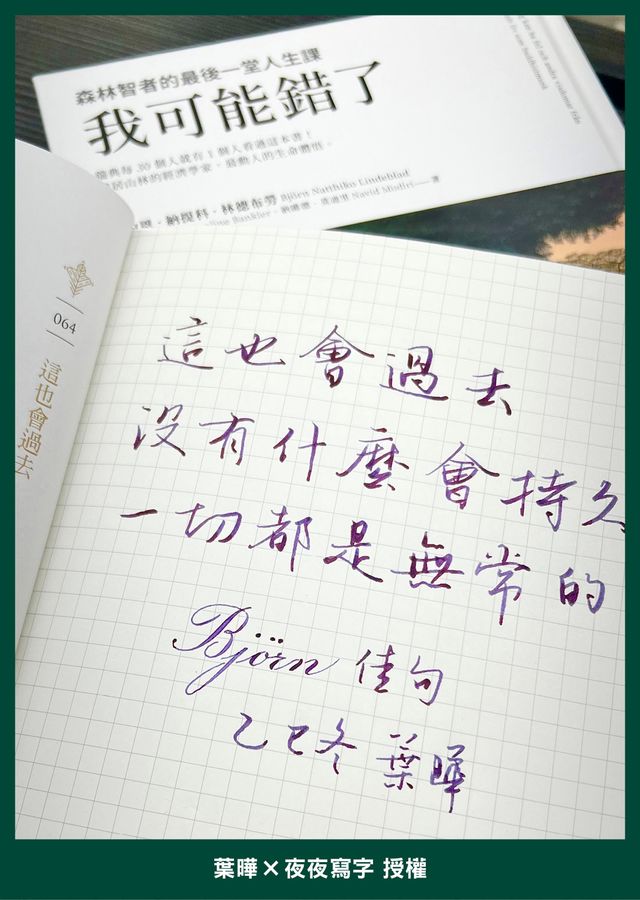 森林智者的最後一堂人生課
我可能錯了
瑞典每 30 個人就有 1 個人看過這本書！
居山林的經濟學家，最動人的生命體悟。
納提科．林德布勞 Björn Natthiko Lindeblad
Bankler、納維德．莫迪里 Navid Modiri
著
064
這也會過去
這也會過去
沒有什麼會持久
一切都是無常的
Björn 佳句
乙巳冬 葉曄
葉曄×夜夜寫字 授權